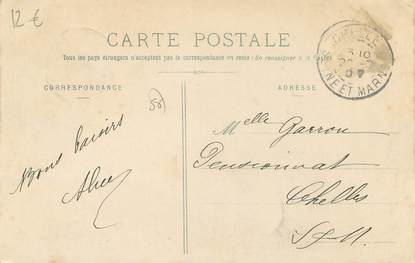 12 €
CARTE POSTALE
Tous les pays étrangers n'acceptent pas la correspondance au recto (Se renseigner à la Poste)
CORRESPONDANCE
ADRESSE
Bons baisers
Alice
Melle Garron
Pensionnat
Chelles
S & M
CHELLES
07
NE ET MARNE